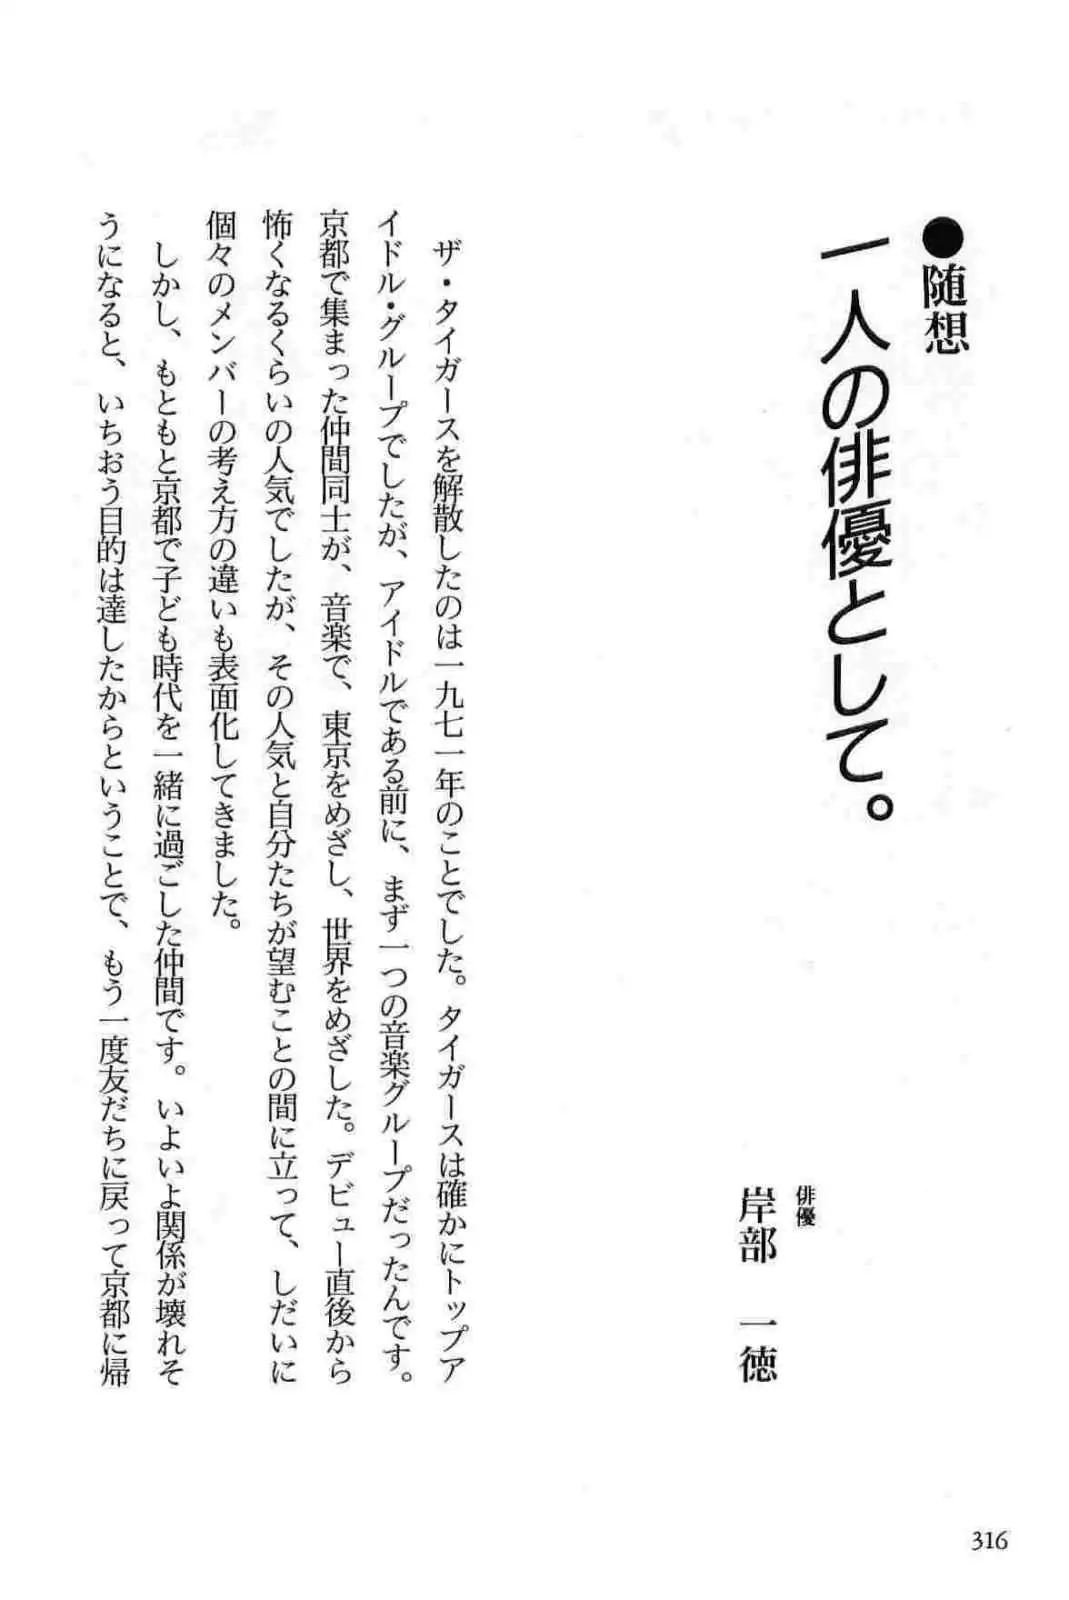 ●随想
一人の俳優として。
俳優
岸部 一徳
ザ・タイガースを解散したのは一九七一年のことでした。タイガースは確かにトップア
イドル・グループでしたが、アイドルである前に、まず一つの音楽グループだったんです。
京都で集まった仲間同士が、音楽で、東京をめざし、世界をめざした。デビュー直後から
怖くなるくらいの人気でしたが、その人気と自分たちが望むことの間に立って、しだいに
個々のメンバーの考え方の違いも表面化してきました。
しかし、もともと京都で子ども時代を一緒に過ごした仲間です。いよいよ関係が壊れそ
うになると、いちおう目的は達したからということで、もう一度友だちに戻って京都に帰
316